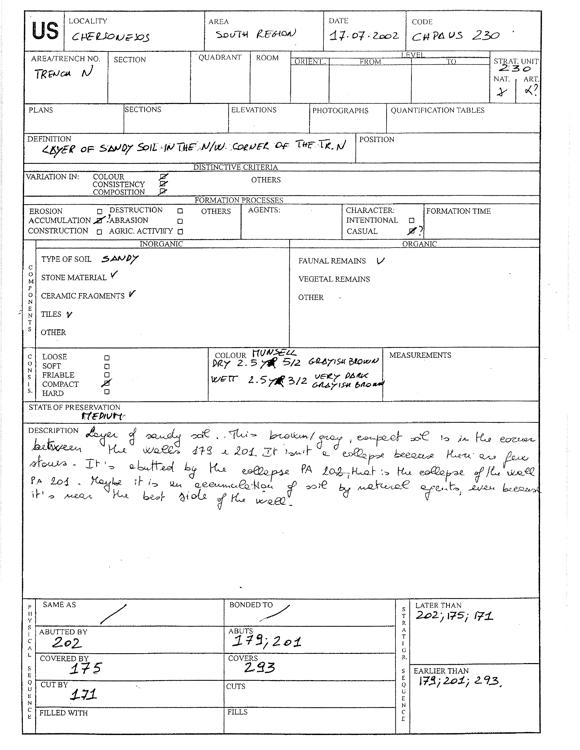 US
LOCALITY
CHERSONESOS
AREA
SOUTH REGION
DATE
17.07.2002
CODE
CHPAUS 230
AREA/TRENCH NO.
TRENCH N
SECTION
QUADRANT
ROOM
LEVEL
ORIENT.
FROM
TO
STRAT. UNIT
230
NAT.
ART.
PLANS
SECTIONS
ELEVATIONS
PHOTOGRAPHS
QUANTIFICATION TABLES
DEFINITION
LAYER OF SANDY SOIL IN THE N/W CORNER OF THE TR. N
POSITION
DISTINCTIVE CRITERIA
VARIATION IN:
COLOUR
CONSISTENCY
COMPOSITION
OTHERS
FORMATION PROCESSES
EROSION
ACCUMULATION
CONSTRUCTION
DESTRUCTION
ABRASION
AGRIC. ACTIVITY
OTHERS
AGENTS:
CHARACTER:
INTENTIONAL
CASUAL ?
FORMATION TIME
COMPONENTS
INORGANIC
TYPE OF SOIL SANDY
STONE MATERIAL ✓
CERAMIC FRAGMENTS ✓
TILES ✓
OTHER
ORGANIC
FAUNAL REMAINS ✓
VEGETAL REMAINS
OTHER
CONSIS.
LOOSE
SOFT
FRIABLE
COMPACT
HARD
COLOUR MUNSELL
DRY 2.5 Y 5/2 GRAYISH BROWN
WETT 2.5 Y 3/2 VERY DARK GRAYISH BROWN
MEASUREMENTS
STATE OF PRESERVATION
MEDIUM
DESCRIPTION Layer of sandy soil. This brown/gray, compact soil is in the corner
between the walls 179 & 201. It isn't a collapse because there are few
stones. It's abutted by the collapse PA 202, that is the collapse of the wall
PA 201. Maybe it is an accumulation of soil by natural agents, even because
it's near the best side of the wall.
PHYSICAL SEQUENCE
SAME AS
BONDED TO
ABUTTED BY
202
ABUTS
179; 201
COVERED BY
175
COVERS
293
CUT BY
171
CUTS
FILLED WITH
FILLS
STRATIGR. SEQUENCE
LATER THAN
202; 175; 171
EARLIER THAN
179; 201; 293.